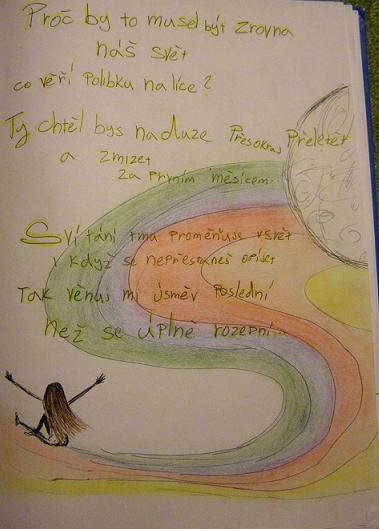 Proč by to musel být zrovna
náš svět
co věří polibku na líce?
Ty chtěl bys na duze přes okraj přeletět
a zmizet
za prvním měsícem...
Svítání tmu proměňuje v svět
i když se nepřestaneš opíjet
Tak věnuj mi úsměv poslední
Než se úplně rozepní...